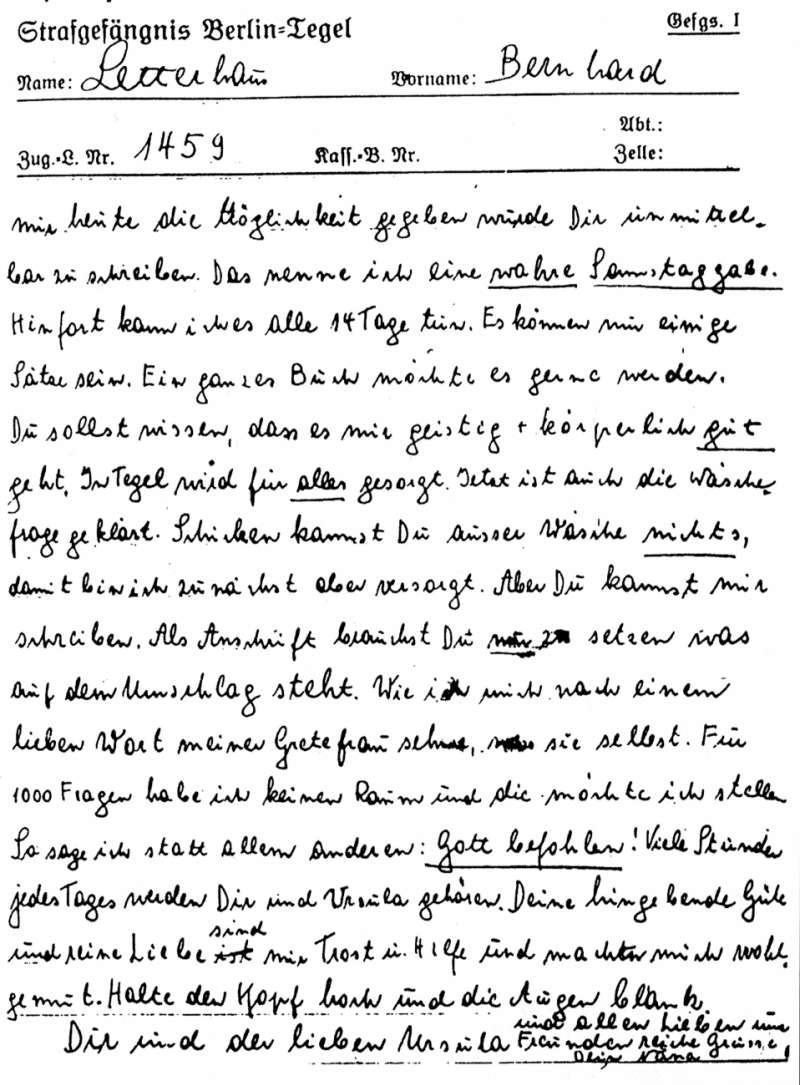 Strafgefängnis Berlin-Tegel
Gefgs. I
Name: Letterhaus Vorname: Bernhard
Abt.:
Zug.-L. Nr. 1459 Kass.-B. Nr. Zelle:
mir heute die Möglichkeit gegeben wurde Dir unmittel-
bar zu schreiben. Das nenne ich eine wahre Samstaggabe.
Hinfort kann ich es alle 14 Tage tun. Es können nur einige
Sätze sein. Ein ganzes Buch möchte es gerne werden.
Du sollst wissen, dass es mir geistig + körperlich gut
geht. In Tegel wird für alles gesorgt. Jetzt ist auch die Wäsche-
frage geklärt. Schicken kannst Du ausser Wäsche nichts,
damit bin ich zunächst aber versorgt. Aber Du kannst mir
schreiben. Als Anschrift brauchst Du nur zu setzen was
auf dem Umschlag steht. Wie ich mich nach einem
lieben Wort meiner Gretefrau sehne, sie selbst. Für
1000 Fragen habe ich keinen Raum und die möchte ich stellen
So sage ich statt allem anderen: Gott befohlen! Viele Stunden
jedes Tages werden Dir und Ursula gehören. Deine hingebende Güte
sind
und reine Liebe ist mir Trost u. Hilfe und machen mich wohl-
gemut. Halte den Kopf hoch und die Augen blank.
und allen Lieben und
Dir und der lieben Ursula Freunden reiche Grüsse,
Dein